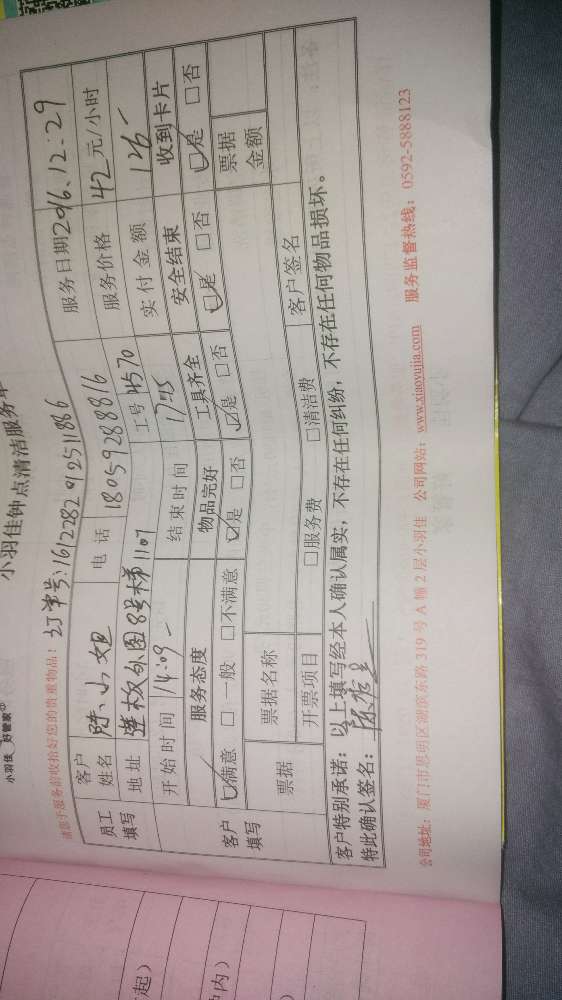 小羽佳 好管家
小羽佳钟点清洁服务单
请您于服务前收拾好您的贵重物品！ 订单号:16122829 12511886
员工填写 客户姓名 陈小姐 电话 18059288816 服务日期 2016.12.29
地址 8号梯1107 工号 4570 服务价格 42元/小时
开始时间 14:09 结束时间 17:15 实付金额 126-
客户填写 服务态度 物品完好 工具齐全 安全结束 收到卡片
☑满意 □一般 □不满意 ☑是 □否 ☑是 □否 ☑是 □否 ☑是 □否
票据 票据名称 票据金额
开票项目 □服务费 □清洁费 客户签名
客户特别承诺：以上填写经本人确认属实，不存在任何纠纷，不存在任何物品损坏。
特此确认签名：
公司地址：厦门市思明区湖滨东路 319 号 A 幢 2 层小羽佳 公司网站：www.xiaoyujia.com 服务监督热线：0592-5888123
起）
内）